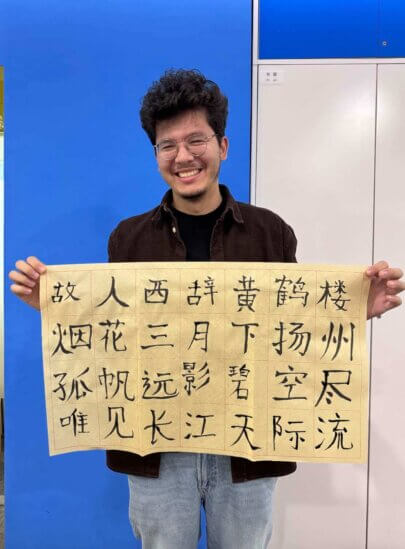 故人西辞黄鹤楼
烟花三月下扬州
孤帆远影碧空尽
唯见长江天际流